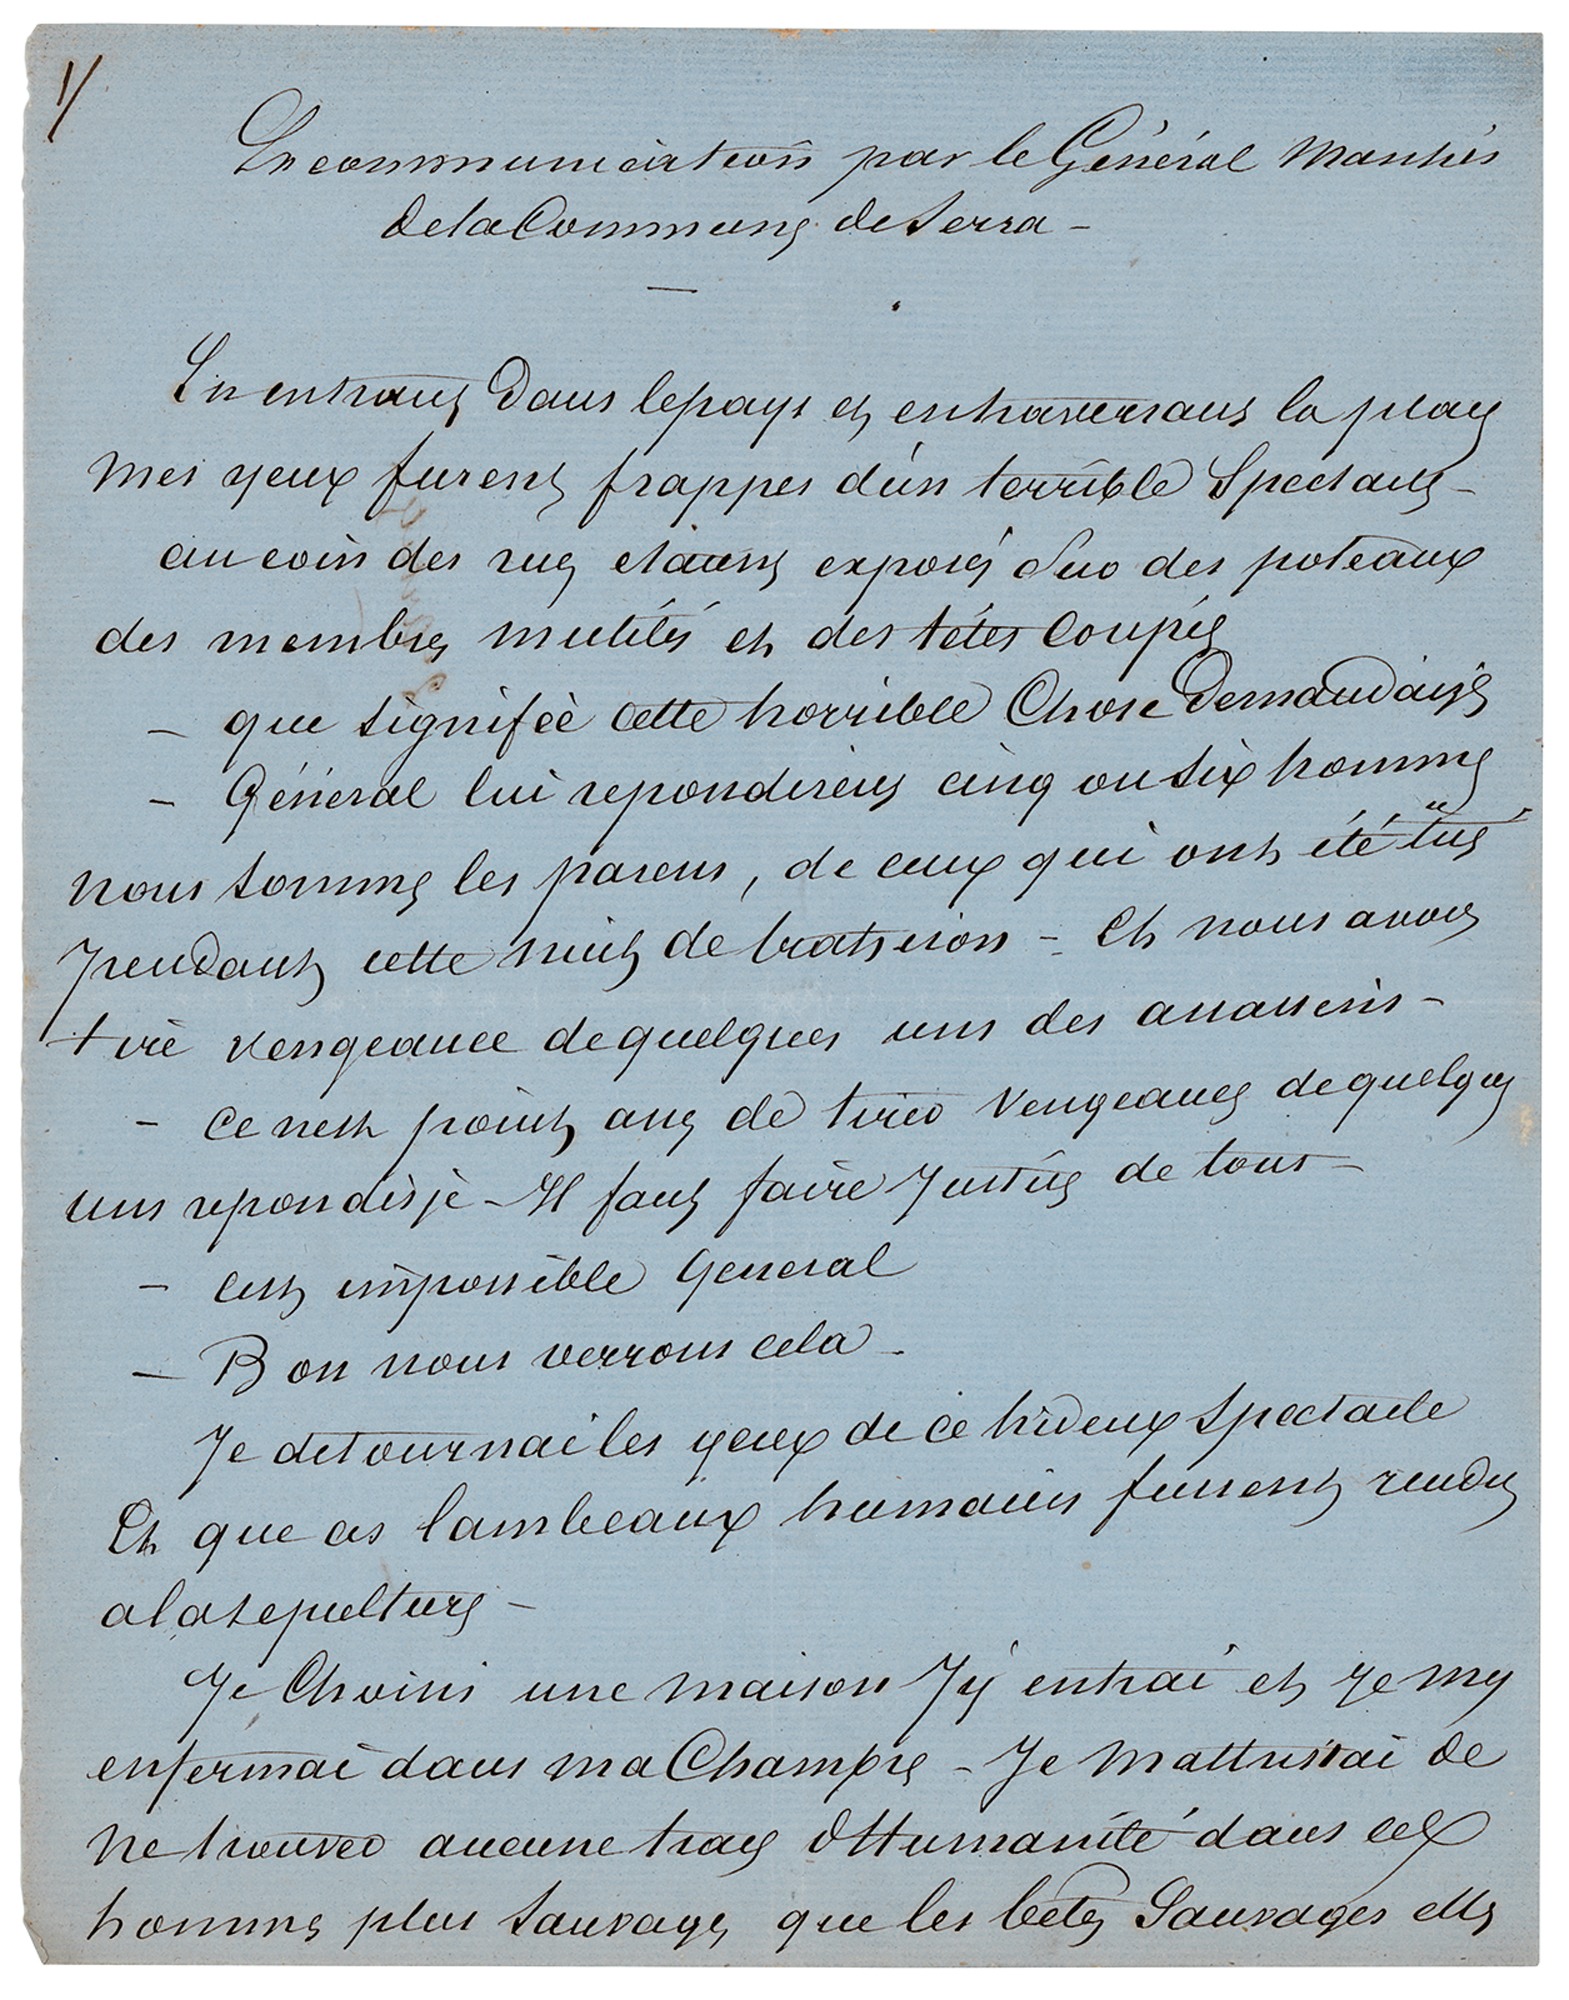 1/
Encommunication par le Général Manhès
de la Commune de Serra –
En entrant dans le pays et en traversant la place
Mes yeux furent frappes d'un terrible Spectacle –
au coin des rues etaient exposés Sur des poteaux
des membres mutilés et des têtes Coupés
– que signifie cette horrible Chose Demandai je
– Général lui repondirent cinq ou six hommes
nous sommes les parens, de ceux qui ont été tués
pendant cette nuit de trahison – Et nous avons
tiré vengeance de quelques uns des assassins –
– Ce nest point assez de tirer vengeance de quelques
uns repondis je – Il faut faire Justice de tous –
– Cest impossible General
– Bon nous verrons cela –
Je detournai les yeux de ce hideux spectacle
Et que ces lambeaux humains fussent rendus
a la sepulture –
Je Choisis une maison J'y entrai et Je my
enfermai dans ma Chambre – Je Mattristai de
Ne trouver aucune trace d'Humanité dans ces
hommes plus sauvages que les betes Sauvages elles